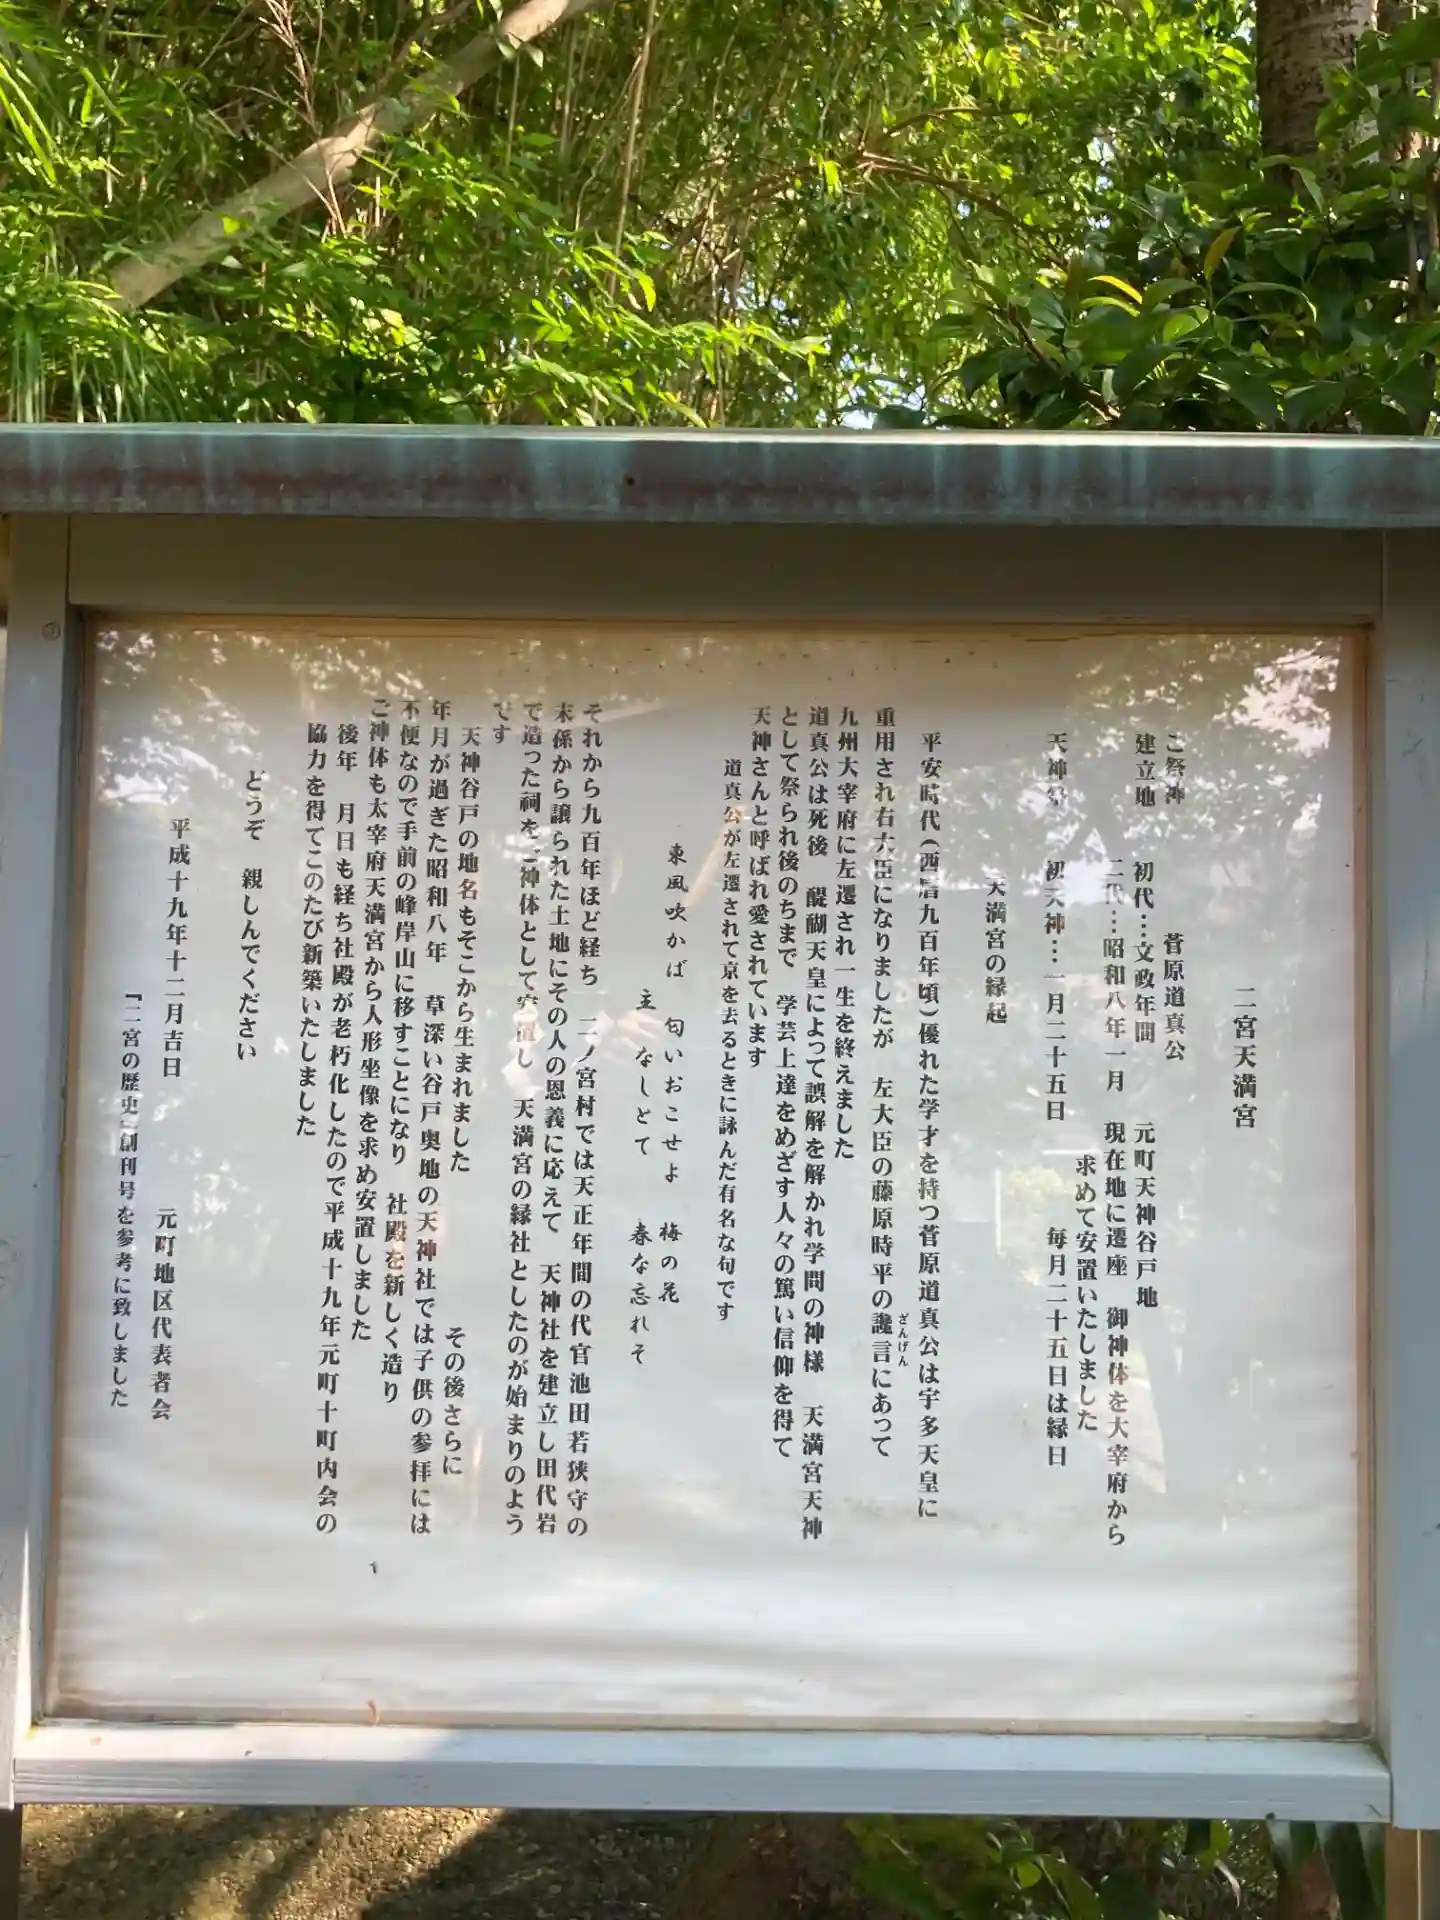 二宮天満宮
ご祭神　　菅原道真公
建立地　初代…文政年間　元町天神谷戸地
二代…昭和八年一月　現在地に遷座　御神体を大宰府から
求めて安置いたしました
天神祭　初天神…一月二十五日　　毎月二十五日は縁日
天満宮の縁起
平安時代(西暦九百年頃)優れた学才を持つ菅原道真公は宇多天皇に
重用され右大臣になりましたが　左大臣の藤原時平の讒言にあって
ざんげん
九州大宰府に左遷され一生を終えました
道真公は死後　醍醐天皇によって誤解を解かれ学問の神様　天満宮天神
として祭られ後のちまで　学芸上達をめざす人々の篤い信仰を得て
天神さんと呼ばれ愛されています
道真公が左遷されて京を去るときに詠んだ有名な句です
東風吹かば　匂いおこせよ　梅の花
主　なしとて　春な忘れそ
それから九百年ほど経ち　二ノ宮村では天正年間の代官池田若狭守の
末孫から譲られた土地にその人の恩義に応えて　天神社を建立し田代岩
で造った祠をご神体として安置し　天満宮の縁社としたのが始まりのよう
です
天神谷戸の地名もそこから生まれました　　　　　その後さらに
年月が過ぎた昭和八年　草深い谷戸奥地の天神社では子供の参拝には
不便なので手前の峰岸山に移すことになり　社殿を新しく造り
ご神体も太宰府天満宮から人形坐像を求め安置しました
後年　月日も経ち社殿が老朽化したので平成十九年元町十町内会の
協力を得てこのたび新築いたしました
どうぞ　親しんでください
平成十九年十二月吉日
元町地区代表者会
『二宮の歴史』創刊号を参考に致しました